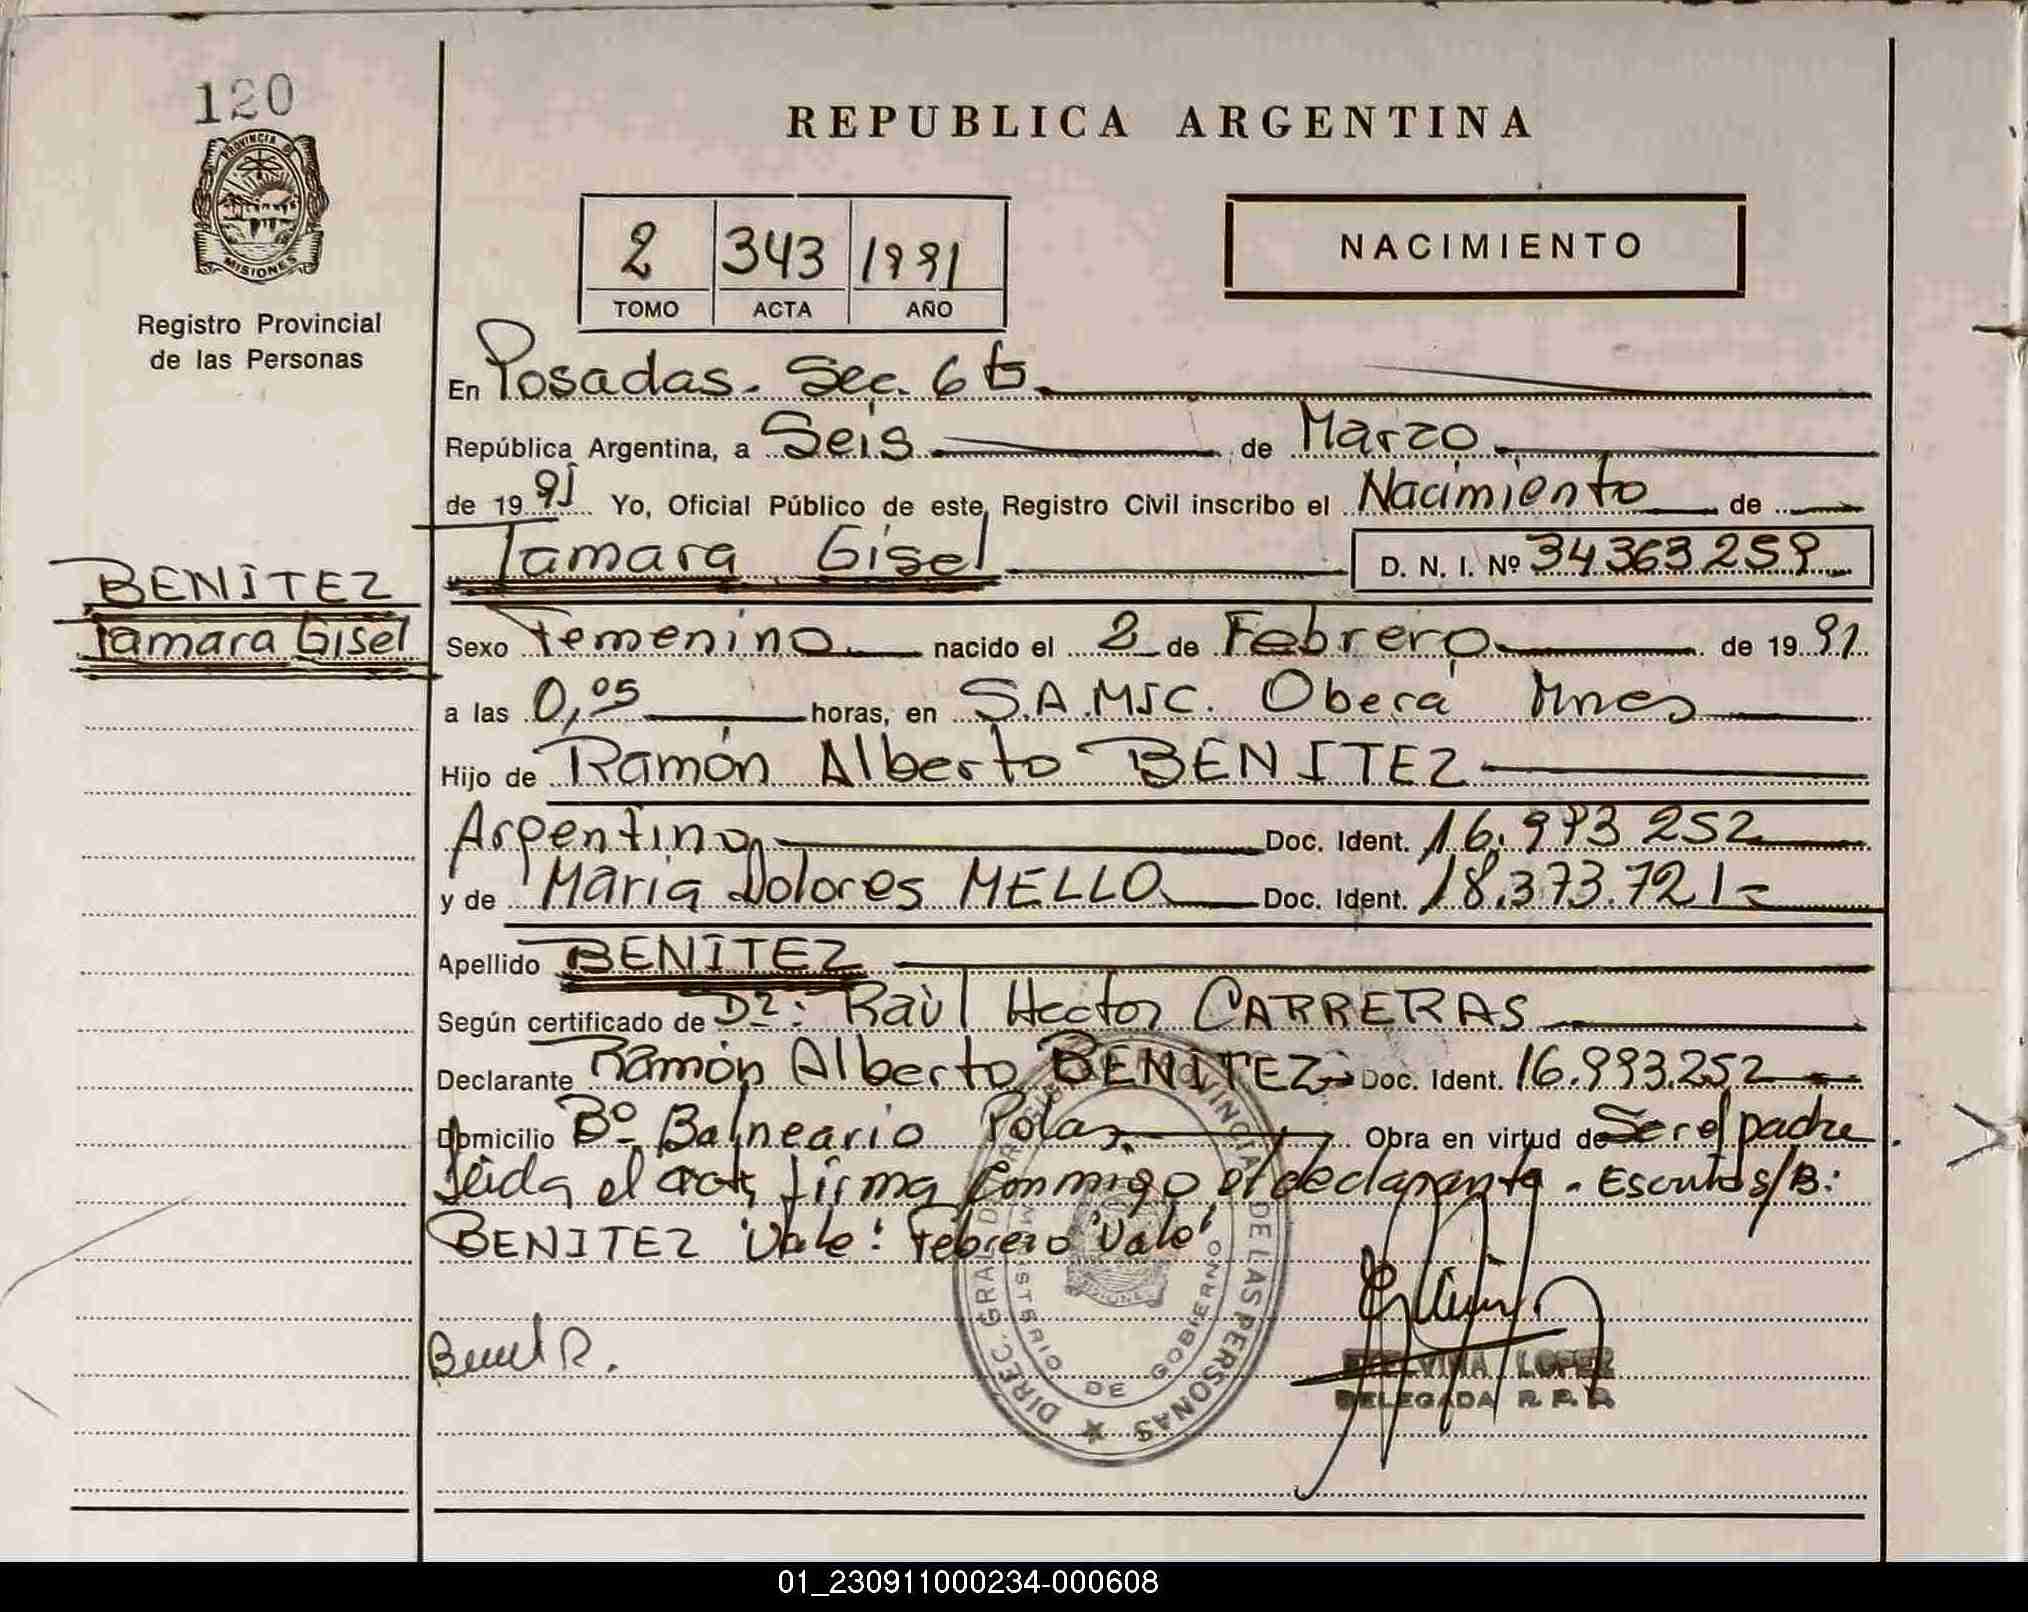 120
PROVINCIA DE
MISIONES
Registro Provincial
de las Personas
REPUBLICA ARGENTINA
2 343 1991
TOMO ACTA AÑO
NACIMIENTO
En Posadas. Sec. 6ta
República Argentina, a Seis de Marzo
de 1991 Yo, Oficial Público de este Registro Civil inscribo el Nacimiento de
Tamara Gisel D. N. I. Nº 34363259
BENITEZ
Tamara Gisel
Sexo Femenino nacido el 2 de Febrero de 1991
a las 0,05 horas, en S.A.MIC. Oberá Mnes
Hijo de Ramón Alberto BENITEZ
Argentino Doc. Ident. 16.993.252
y de María Dolores MELLO Doc. Ident. 18.373.721-
Apellido BENITEZ
Según certificado de Dr: Raùl Hector CARRERAS
Declarante Ramón Alberto BENITEZ Doc. Ident. 16.993.252
Domicilio Bº Balneario Obra en virtud de Ser el padre
Leida el acta, firma conmigo el declarante. Escrito s/B:
BENITEZ 'Vale'. Febrero 'Vale'
DIREC. GRAL. DE LAS PERSONAS
MINISTERIO DE GOBIERNO
LOPEZ
DELEGADA R. P. P.
01_230911000234-000608